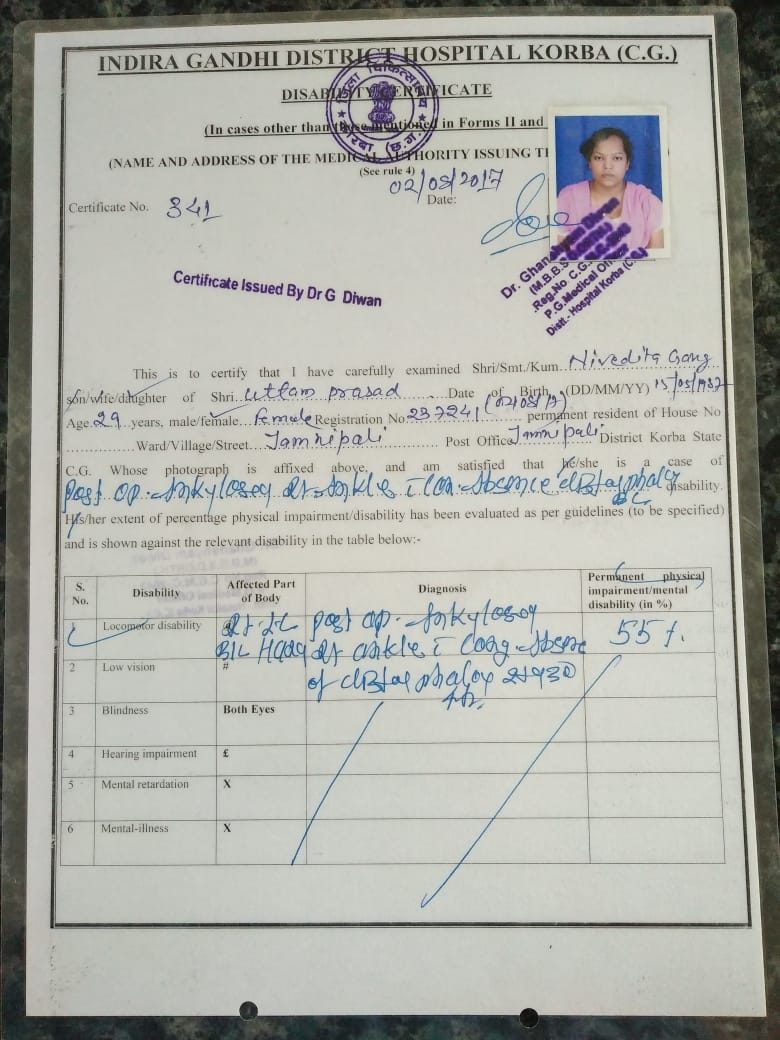 INDIRA GANDHI DISTRICT HOSPITAL KORBA (C.G.)
DISABILITY CERTIFICATE
(In cases other than those mentioned in Forms II and
(NAME AND ADDRESS OF THE MEDICAL AUTHORITY ISSUING
(See rule 4)
02/08/2017
Certificate No. 341 Date:
जिला चिकित्सालय
कोरबा (छ.ग.)
Certificate Issued By Dr G Diwan
Dr. Ghanshyam Diwan
(M.B.B.S.
Reg.No. C.G.
P.G.Medical Officer
Distt.- Hospital Korba (C.G.)
This is to certify that I have carefully examined Shri/Smt./Kum. Nivedita Gang
son/wife/daughter of Shri. Uttam prasad Date of Birth (DD/MM/YY) 15/05/1987
Age 29 years, male/female. female Registration No 237241 (02/08/17) permanent resident of House No
Ward/Village/Street. Jamnipali Post Office Jamnipali District Korba State
C.G. Whose photograph is affixed above, and am satisfied that he/she is a case of
Post op. Ankylosed Rt. Ankle c Con. Absence disability.
His/her extent of percentage physical impairment/disability has been evaluated as per guidelines (to be specified)
and is shown against the relevant disability in the table below:-
S. No. Disability Affected Part of Body Diagnosis Permanent physical impairment/mental disability (in %)
1 Locomotor disability @ Rt. LL post op. Ankylosed 55 %.
B/L Hand Rt ankle c Cong. Absence
2 Low vision # of
3 Blindness Both Eyes
4 Hearing impairment £
5 Mental retardation X
6 Mental-illness X